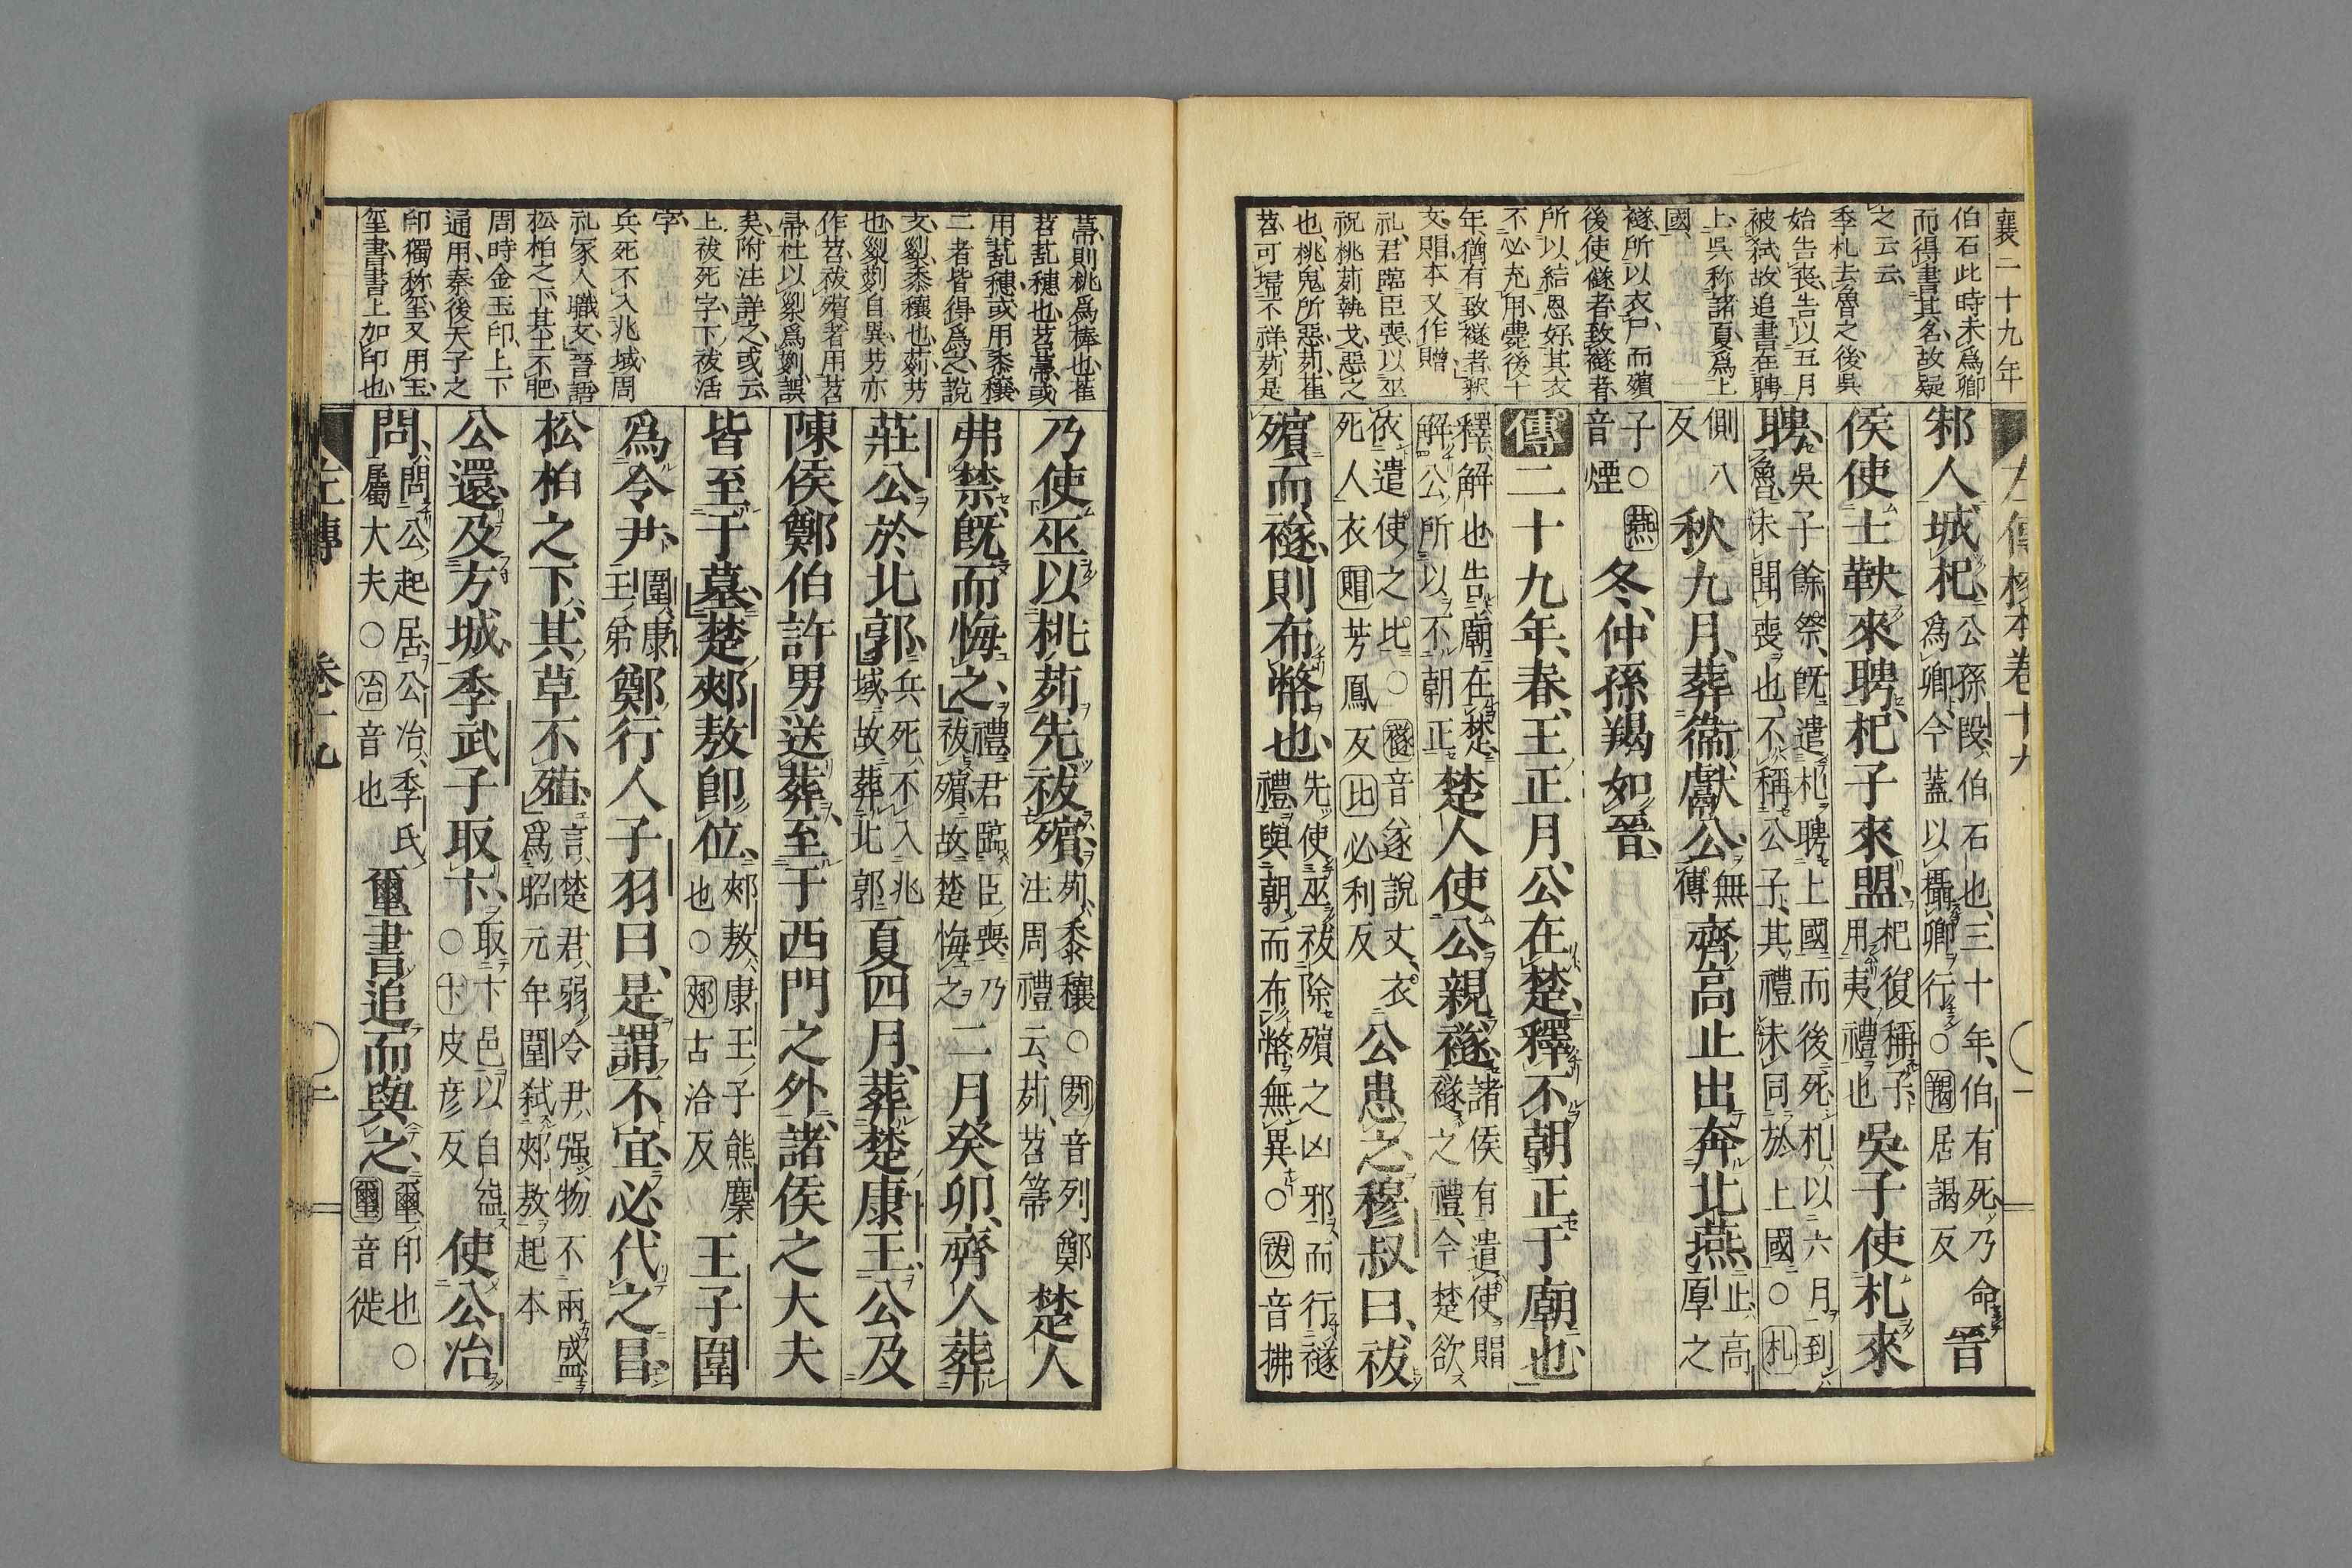 襄二十九年
伯石此時未爲卿
而得書其名故疑
之云云
季札去魯之後吳
始告喪告以五月
被弒故追書在聘
上吳称諸夏爲上
國
襚所以衣尸而殯
後使襚者致襚者
所以結恩好其衣
不必充用斃後十
年猶有致襚者釈
文賵本又作贈
礼君臨臣喪以巫
祝桃茢執戈惡之
也桃鬼所惡茢萑
苕可埽不祥茢是
左傳校本卷十九
邾人城杞
公孫段伯石也三十年伯有死乃命
爲卿今蓋以攝卿行○羯居謁反
晉
侯使士鞅來聘杞子來盟
杞復稱子
用夷禮也
吳子使札來
聘
吳子餘祭既遣札聘上國而後死札以六月到
魯未聞喪也不稱公子其禮未同於上國○札
側八
反
秋九月葬衞獻公
無
傳
齊高止出奔北燕
止高
厚之
子○燕
音煙
冬仲孫羯如晉
傳二十九年春王正月公在楚釋不朝正于廟也
釋解也告廟在楚
解公所以不朝正
楚人使公親襚
諸侯有遣使賵
襚之禮今楚欲
依遣使之比○襚音遂說文衣
死人衣賵芳鳳反比必利反
公患之穆叔曰祓
殯而襚則布幣也
先使巫祓除殯之凶邪而行襚
禮與朝而布幣無異○祓音拂
菷則桃爲棒也萑
苕乱穗也苕菷或
用乱穗或用黍穰
二者皆得爲之説
文䅀黍穰也茢芀
也䅀茢自異芀亦
作苕祓殯者用苕
帚杜以䅀爲茢誤
矣附注詳之或云
上祓死字下祓活
字
兵死不入兆域周
礼冢人職文晉語
松柏之下其土不肥
周時金玉印上下
通用秦後天子之
印獨称璽又用玉
璽書書上加印也
乃使巫以桃茢先祓殯
茢黍穰○茢音列鄭
注周禮云茢苕箒
楚人
弗禁既而悔之
禮君臨臣喪乃
祓殯故楚悔之
二月癸卯齊人葬
莊公於北郭
兵死不入兆
域故葬北郭
夏四月葬楚康王公及
陳侯鄭伯許男送葬至于西門之外諸侯之大夫
皆至于墓楚郟敖卽位
郟敖康王子熊麇
也○郟古洽反
王子圍
爲令尹
圍康
王弟
鄭行人子羽曰是謂不宜必代之昌
松柏之下其草不殖
言楚君弱令尹强物不兩盛
爲昭元年圍弒郟敖起本
公還及方城季武子取卞
取卞邑以自益
○卞皮彦反
使公冶
問
問公起居公冶季氏
屬大夫○冶音也
璽書追而與之
璽印也○
璽音徙
左傳 卷十九
二